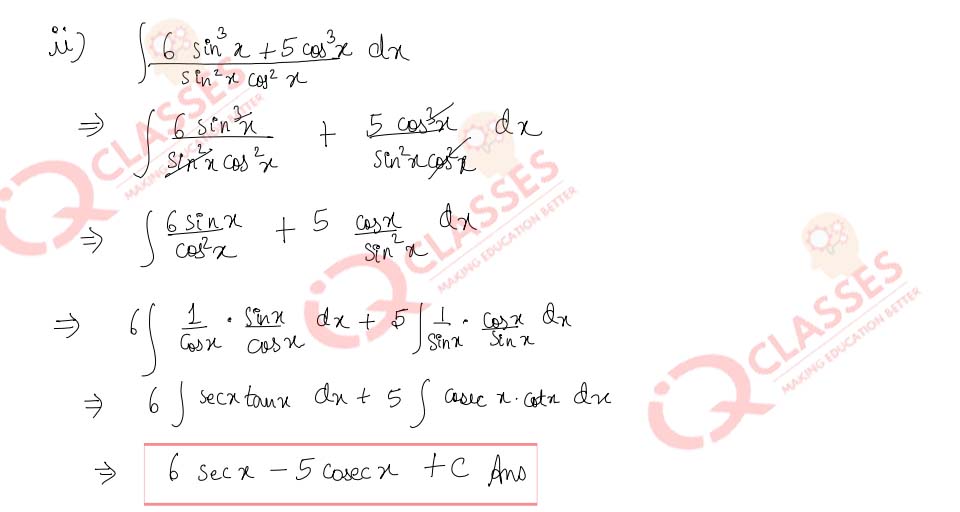 ii) ∫ (6 sin³x + 5 cos³x) / (sin²x cos²x) dx
⇒ ∫ 6 sin³x / (sin²x cos²x) + 5 cos³x / (sin²x cos²x) dx
⇒ ∫ 6 sinx / cos²x + 5 cosx / sin²x dx
⇒ 6 ∫ 1/cosx · sinx/cosx dx + 5 ∫ 1/sinx · cosx/sinx dx
⇒ 6 ∫ secx tanx dx + 5 ∫ cosec x · cotx dx
⇒ 6 secx − 5 cosecx + C Ans
iQ CLASSES
MAKING EDUCATION BETTER
iQ CLASSES
MAKING EDUCATION BETTER
iQ CLASSES
MAKING EDUCATION BETTER